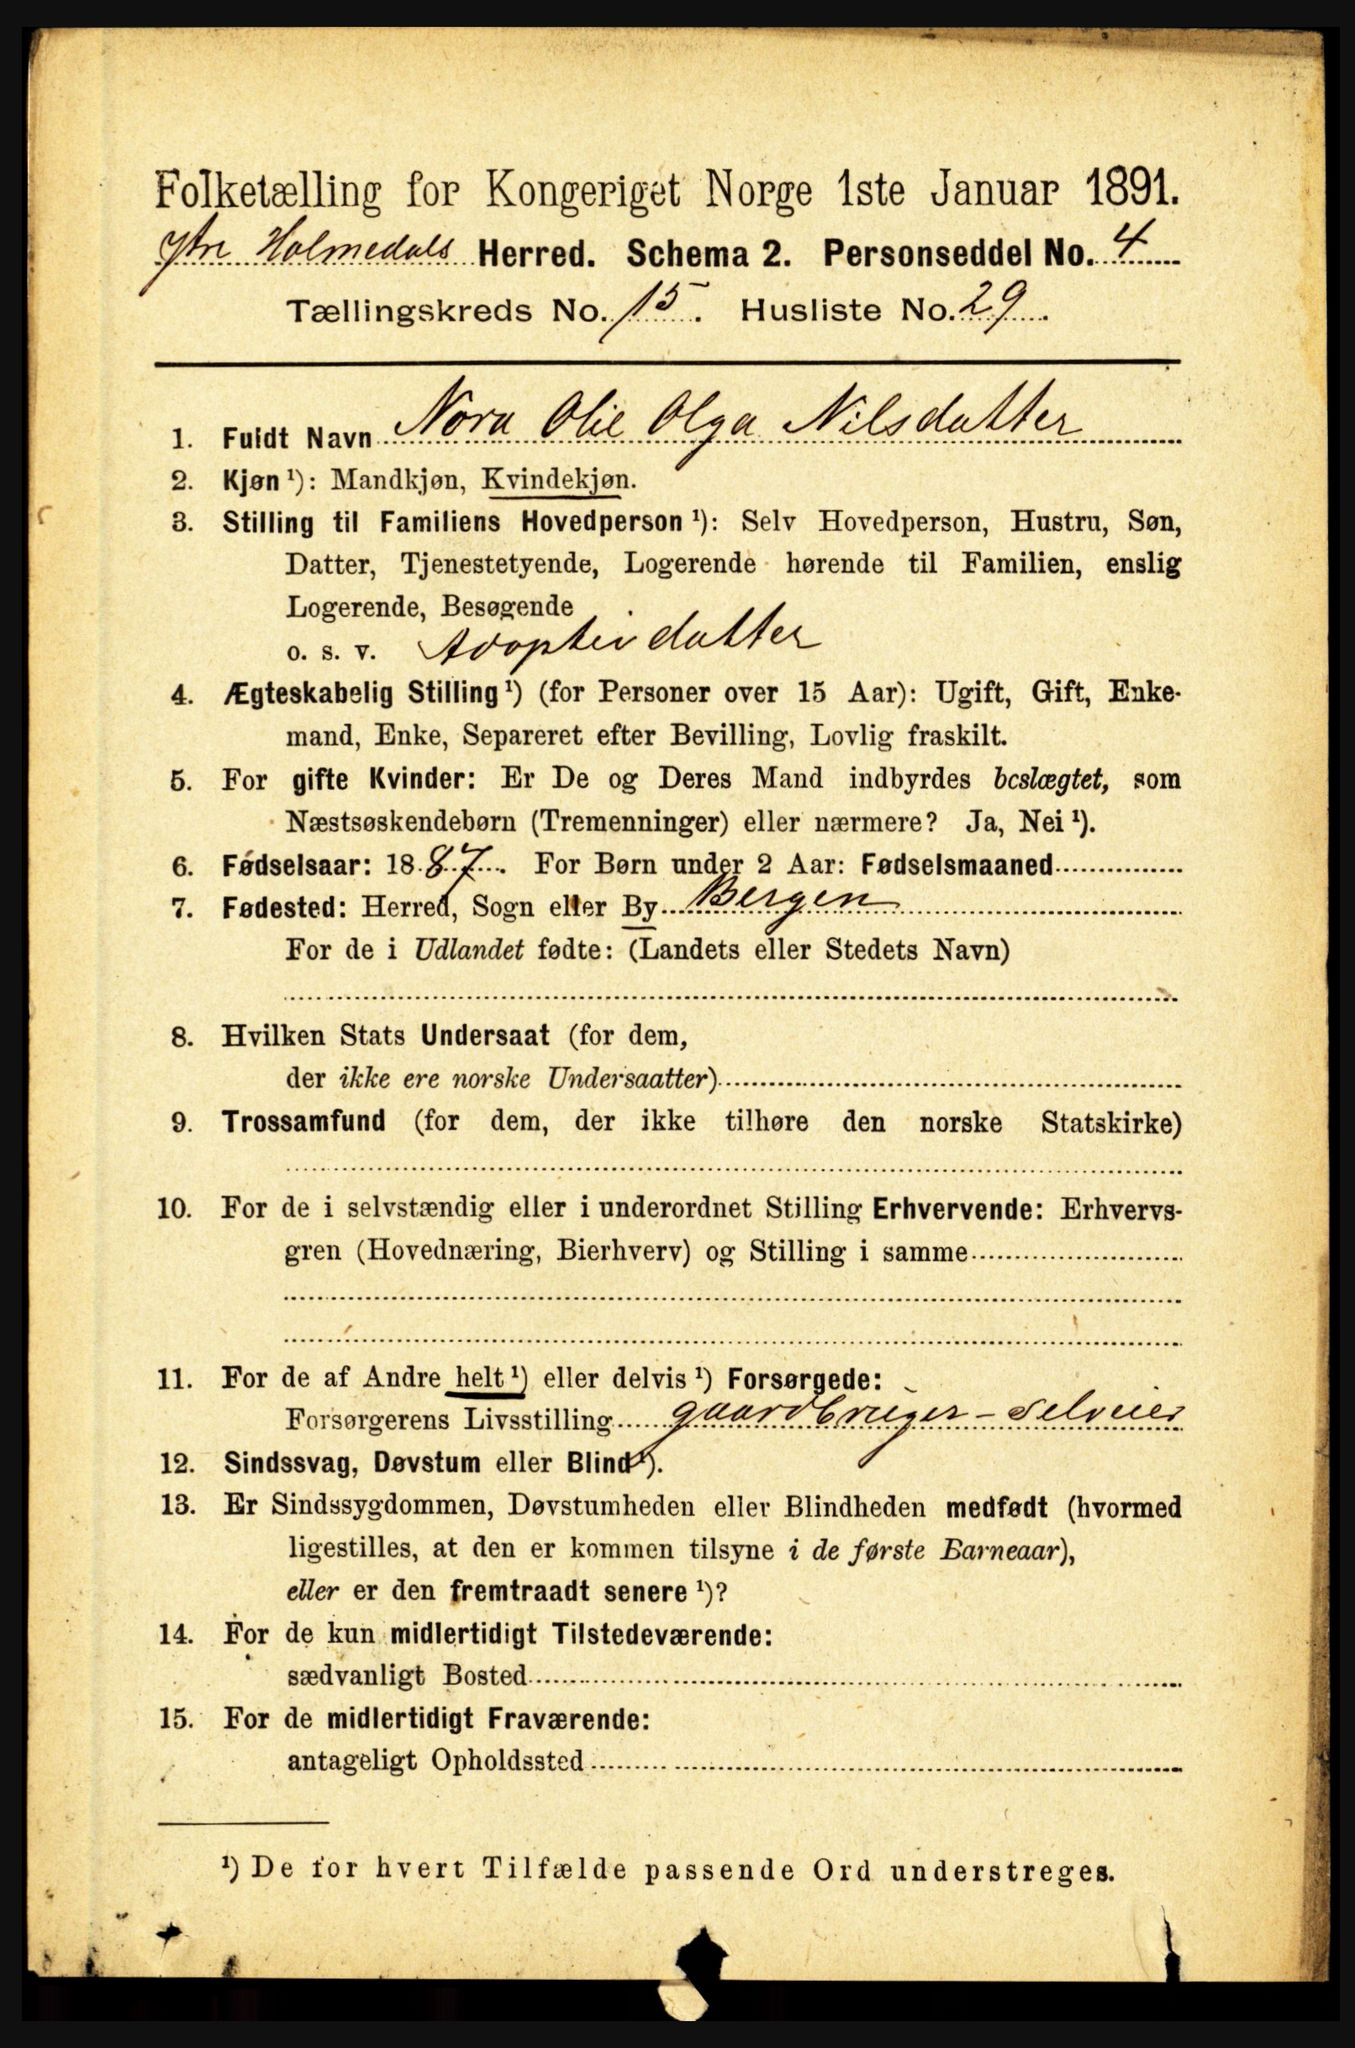 Folketælling for Kongeriget Norge 1ste Januar 1891.
Ytre Holmedals Herred. Schema 2. Personseddel No. 4
Tællingskreds No. 15. Husliste No. 29.
1. Fuldt Navn Nora Olie Olga Nilsdatter
2. Kjøn ¹): Mandkjøn, Kvindekjøn.
3. Stilling til Familiens Hovedperson ¹): Selv Hovedperson, Hustru, Søn,
Datter, Tjenestetyende, Logerende hørende til Familien, enslig
Logerende, Besøgende
o. s. v. Adoptivdatter
4. Ægteskabelig Stilling ¹) (for Personer over 15 Aar): Ugift, Gift, Enke-
mand, Enke, Separeret efter Bevilling, Lovlig fraskilt.
5. For gifte Kvinder: Er De og Deres Mand indbyrdes beslægtet, som
Næstsøskendebørn (Tremenninger) eller nærmere? Ja, Nei ¹).
6. Fødselsaar: 1887. For Børn under 2 Aar: Fødselsmaaned
7. Fødested: Herred, Sogn eller By Bergen
For de i Udlandet fødte: (Landets eller Stedets Navn)
8. Hvilken Stats Undersaat (for dem,
der ikke ere norske Undersaatter)
9. Trossamfund (for dem, der ikke tilhøre den norske Statskirke)
10. For de i selvstændig eller i underordnet Stilling Erhvervende: Erhvervs-
gren (Hovednæring, Bierhverv) og Stilling i samme
11. For de af Andre helt ¹) eller delvis ¹) Forsørgede:
Forsørgerens Livsstilling gaardbruger - Selveier
12. Sindssvag, Døvstum eller Blind ¹).
13. Er Sindssygdommen, Døvstumheden eller Blindheden medfødt (hvormed
ligestilles, at den er kommen tilsyne i de første Barneaar),
eller er den fremtraadt senere ¹)?
14. For de kun midlertidigt Tilstedeværende:
sædvanligt Bosted
15. For de midlertidigt Fraværende:
antageligt Opholdssted
¹) De for hvert Tilfælde passende Ord understreges.